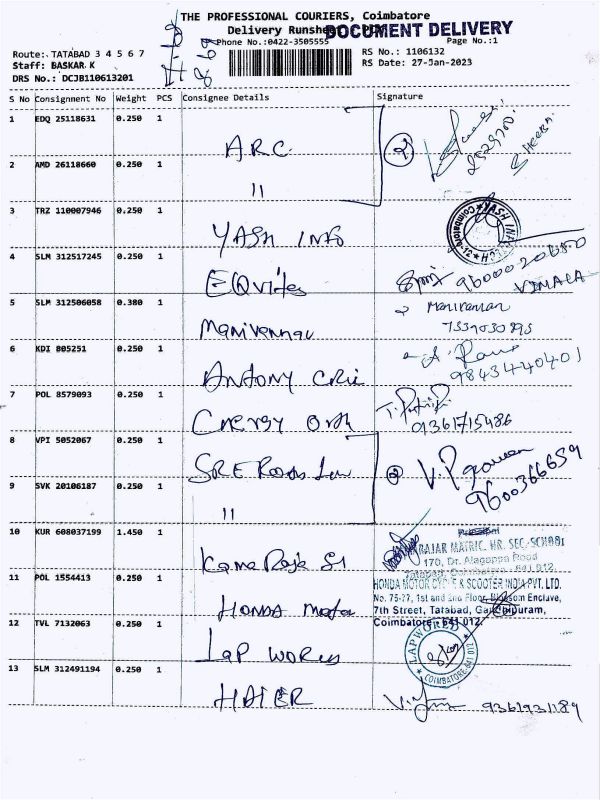 THE PROFESSIONAL COURIERS, Coimbatore
Delivery Runsheet
DOCUMENT DELIVERY
Phone No.:0422-3505555
Page No.:1
Route: TATABAD 3 4 5 6 7
RS No.: 1106132
Staff: BASKAR K
RS Date: 27-Jan-2023
DRS No.: DCJB110613201
S No Consignment No Weight PCS Consignee Details Signature
1 EDQ 25118631 0.250 1 ARC
2
SHEEBA
2 AMD 26118660 0.250 1 "
3 TRZ 110007946 0.250 1 YASH INFO
YASH INFO
Coimbatore-12
4 SLM 312517245 0.250 1 EQuites
9600020680
VIMALA
5 SLM 312506058 0.380 1 Manivannan
Manivannan
7339030895
6 KDI 805251 0.250 1 ANTONY
9843440401
7 POL 8579093 0.250 1 Energy
9361715486
8 VPI 5052067 0.250 1 SRE
2
9600366659
9 SVK 20106187 0.250 1 "
10 KUR 608037199 1.450 1 Kama Raja
RAJAR MATRIC. HR. SEC. SCHOOL
170, Dr. Alagappa Road
Tatabad, Coimbatore - 641 012
11 POL 1554413 0.250 1 HONDA
HONDA MOTOR CYCLE & SCOOTER INDIA PVT. LTD.
No. 75-77, 1st and 2nd Floor, Blossom Enclave,
7th Street, Tatabad, Gandhipuram,
Coimbatore - 641 012
12 TVL 7132063 0.250 1 LAP WORLD
LAPWORLD
COIMBATORE-641 012
13 SLM 312491194 0.250 1 HAIER
9361931189